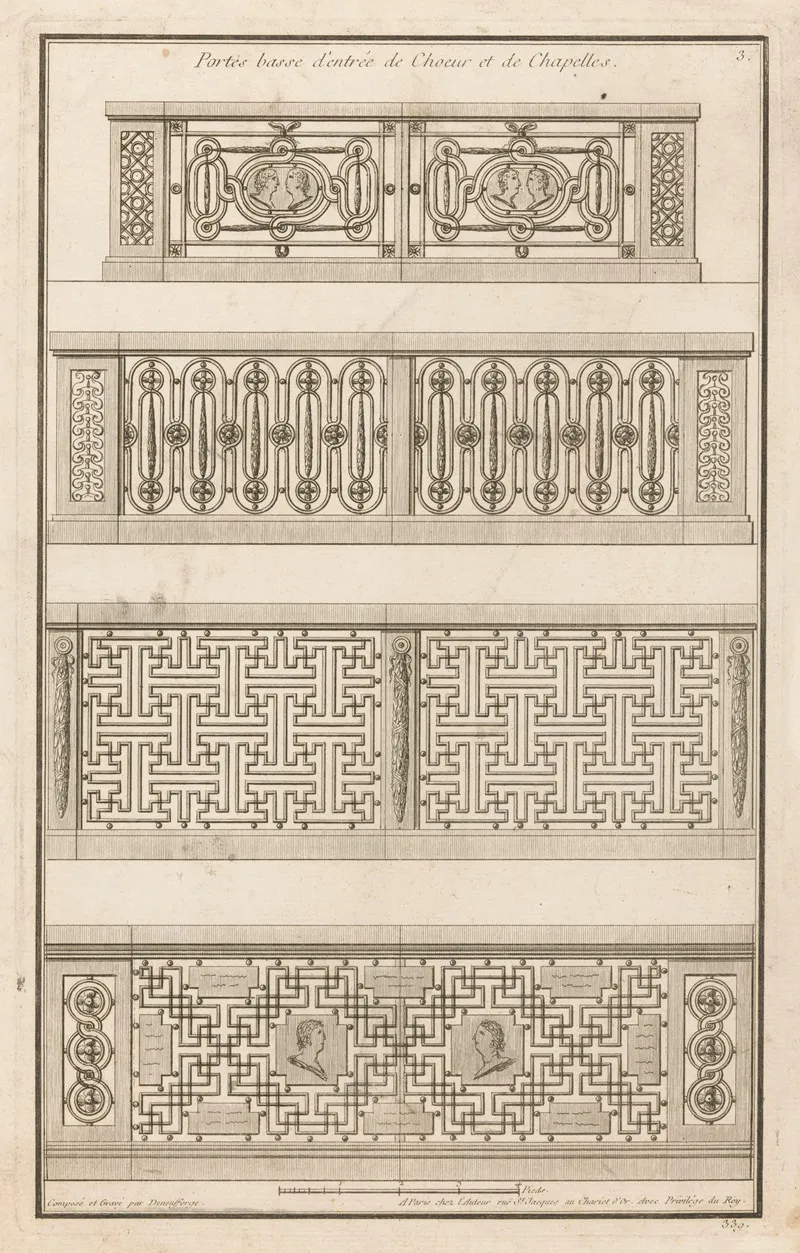 Portes basse d'entrée de Choeur et de Chapelles.
3.
Pieds.
Composé et Gravé par Deneufforge.
A Paris chez l'Auteur rue St Jacques au Chariot d'Or. Avec Privilége du Roy.
339.